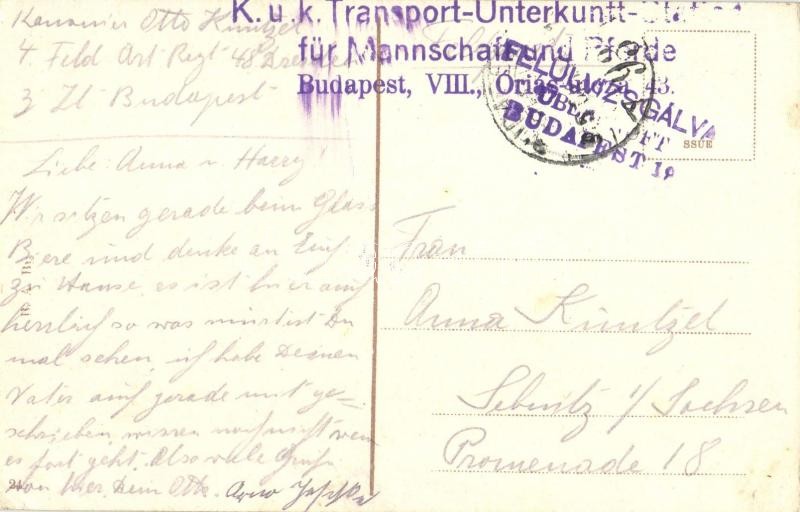 K. u. k. Transport-Unterkunft-Station
für Mannschaft und Pferde
Budapest, VIII., Óriás-utcza 43.
FELÜLVIZSGÁLVA
ÜBERPRÜFT
BUDAPEST 19
SSUE
Kanonier Otto Küntzel
4. Feld Art Regt 48 Dresden
z Zt Budapest
Liebe Anna u. Harry!
Wir sitzen gerade beim Glass
Biere und denke an Euch
zu Hause, es ist hier auch
herrlich so was müsstest Du
mal sehen, ich habe Deinen
Vater auch gerade mit ge-
schrieben, wissen noch nicht wenn
es fort geht. Also viele Grüße
von hier Dein Otto. Arno
Frau
Anna Küntzel
Sebnitz i/ Sachsen
Promenade 18